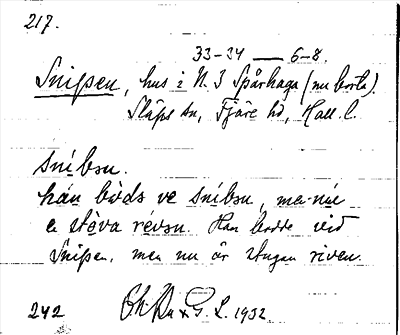 217.
33-34 — 6-8.
Snipen, hus i N. 3 Spårhaga (nu borta).
Släps sn, Fjäre hd, Hall. l.
snibsn.
hán bòds ve snibsn, me-nú
e stòva révsn. Han bodde vid
Snipsen, men nu är stugan riven.
242 & G. L. 1932